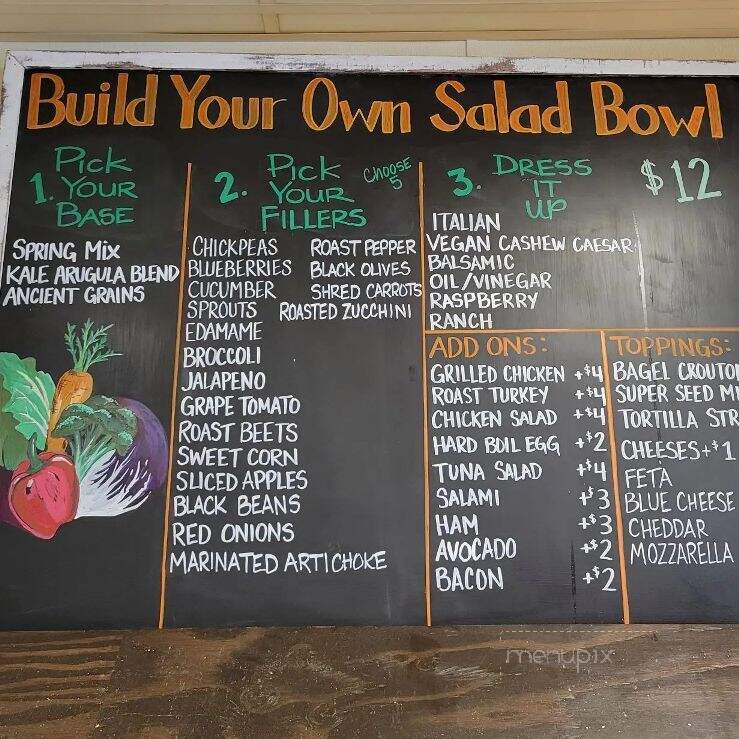 Build Your Own Salad Bowl
1. Pick
YOUR
BASE
SPRING Mix
KALE ARUGULA BLEND
ANCIENT GRAINS
2. Pick
YOUR
FILLERS
CHOOSE
5
CHICKPEAS
BLUEBERRIES
CUCUMBER
SPROUTS
EDAMAME
BROCCOLI
JALAPENO
GRAPE TOMATO
ROAST BEETS
SWEET CORN
SLICED APPLES
BLACK BEANS
RED ONIONS
MARINATED ARTICHOKE
ROAST PEPPER
BLACK OLIVES
SHRED CARROTS
ROASTED ZUCCHINI
3. DRESS
IT
UP
$12
ITALIAN
VEGAN CASHEW CAESAR
BALSAMIC
OIL/VINEGAR
RASPBERRY
RANCH
ADD ONS:
GRILLED CHICKEN +$4
ROAST TURKEY +$4
CHICKEN SALAD +$4
HARD BOIL EGG +$2
TUNA SALAD +$4
SALAMI +$3
HAM +$3
AVOCADO +$2
BACON +$2
TOPPINGS:
BAGEL CROUTO
SUPER SEED M
TORTILLA STR
CHEESES+$1
FETA
BLUE CHEESE
CHEDDAR
MOZZARELLA
menupix